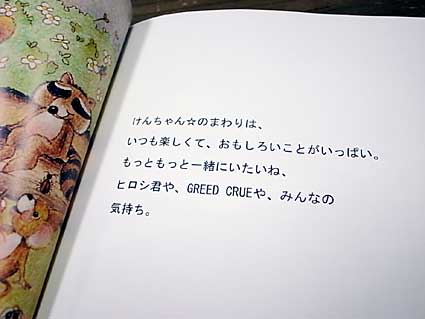 けんちゃん☆のまわりは、
いつも楽しくて、おもしろいことがいっぱい。
もっともっと一緒にいたいね、
ヒロシ君や、GREED CRUEや、みんなの
気持ち。